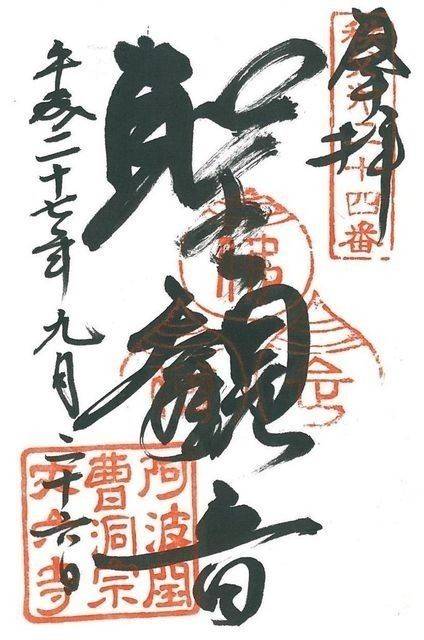 奉拝
十四番
聖観音
平成二十七年九月二十六日
阿波國
曹洞宗
寺